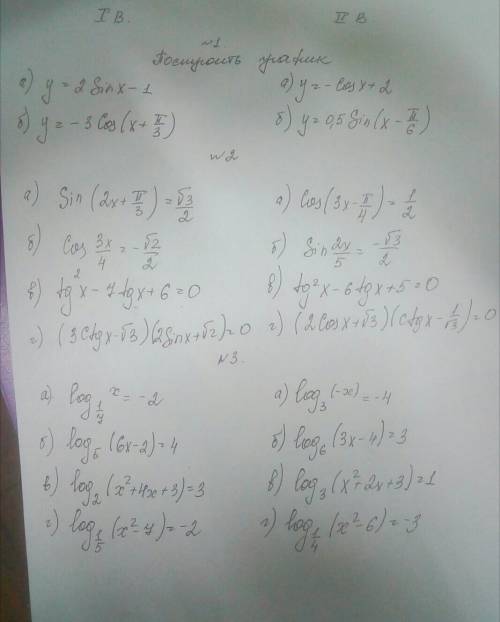 I В. II В
№1
Построить график
а) y = 2 Sin x - 1 а) y = - Cos x + 2
б) y = -3 Cos (x + π/3) б) y = 0,5 Sin (x - π/6)
№2
а) Sin (2x + π/3) = √3/2 а) Cos (3x - π/4) = 1/2
б) Cos 3x/4 = -√2/2 б) Sin 2x/5 = -√3/2
в) tg²x - 7 tg x + 6 = 0 в) tg²x - 6 tg x + 5 = 0
г) (3 Ctg x - √3)(2 Sin x + √2) = 0 г) (2 Cos x + √3)(Ctg x - 1/√3) = 0
№3.
а) log_{1/7} x = -2 а) log_3 (-x) = -4
б) log_5 (6x - 2) = 4 б) log_6 (3x - 4) = 3
в) log_2 (x² + 4x + 3) = 3 в) log_3 (x² + 2x + 3) = 1
г) log_{1/5} (x² - 7) = -2 г) log_{1/4} (x² - 6) = -3